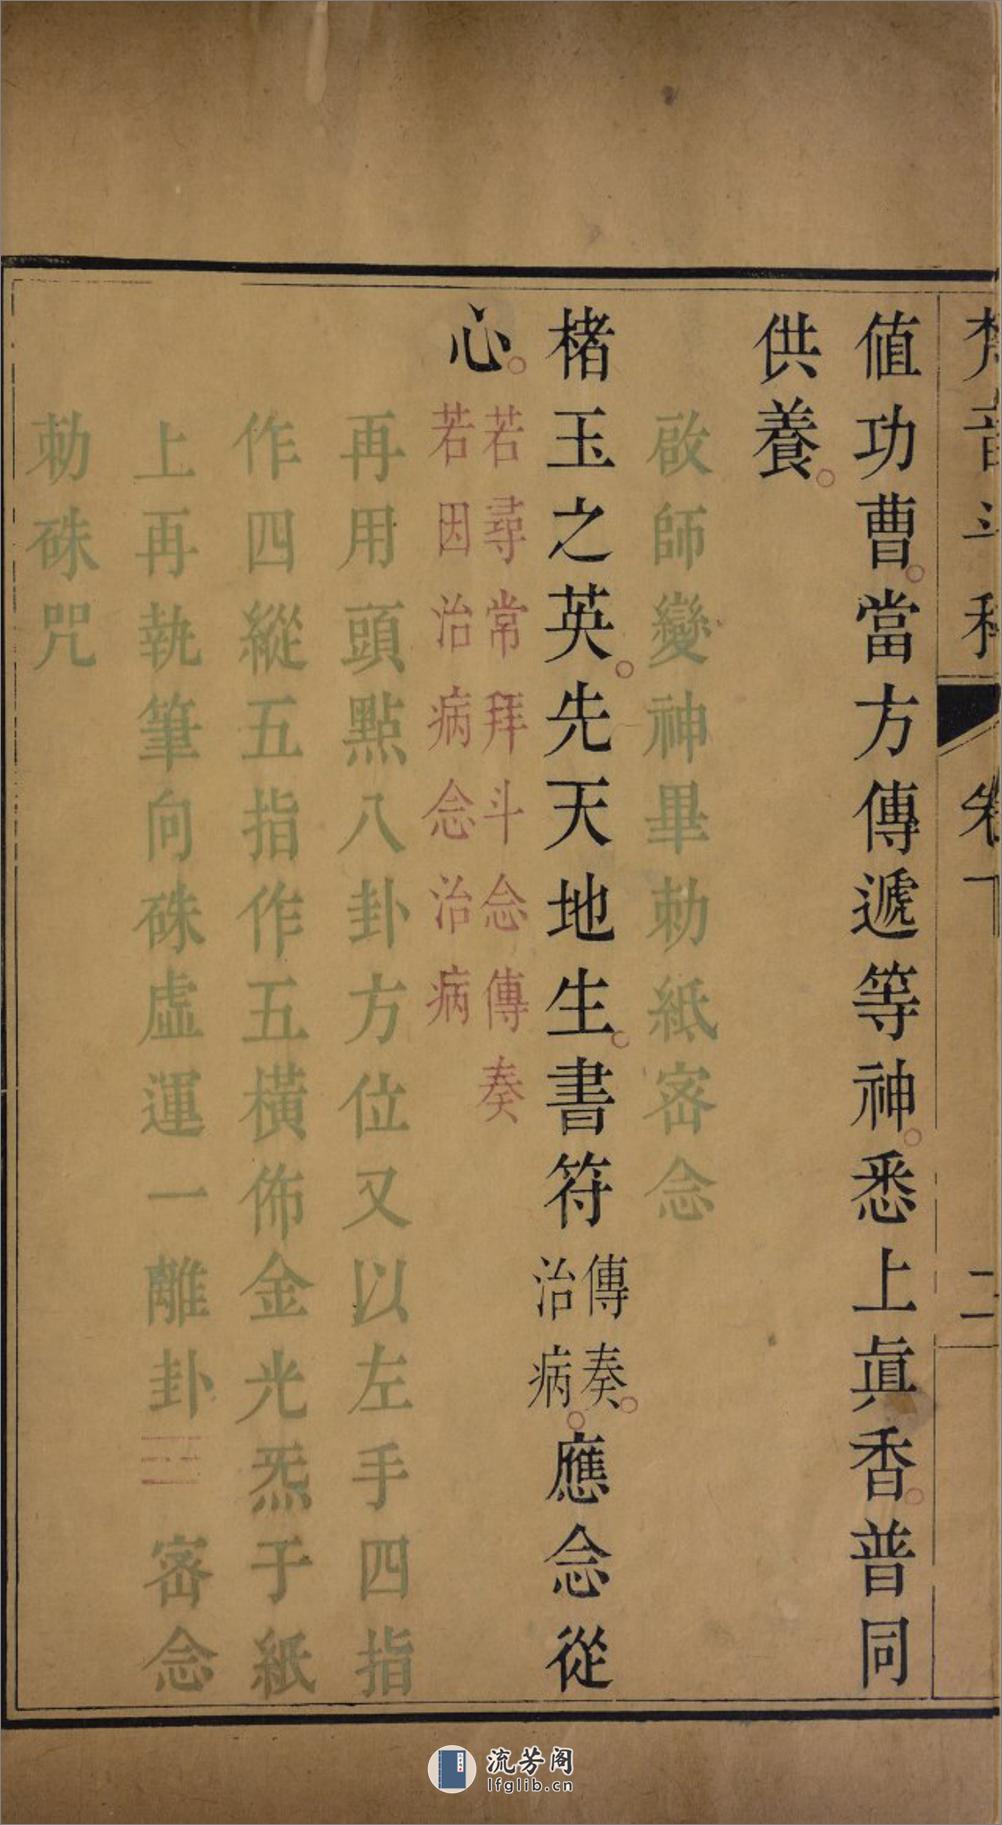 梵音斗科 卷下 二
值功曹。當方傳遞等神。悉上眞香。普同
供養。
啟師變神畢勅紙宻念
楮玉之英。先天地生。書符傳奏。治病。應念從
心。若尋常拜斗念傳奏
若因治病念治病
再用頭點八卦方位又以左手四指
作四縱五指作五橫佈金光炁于紙
上再執筆向硃虛運一離卦☲宻念
勅硃咒
流芳阁
lfglib.cn